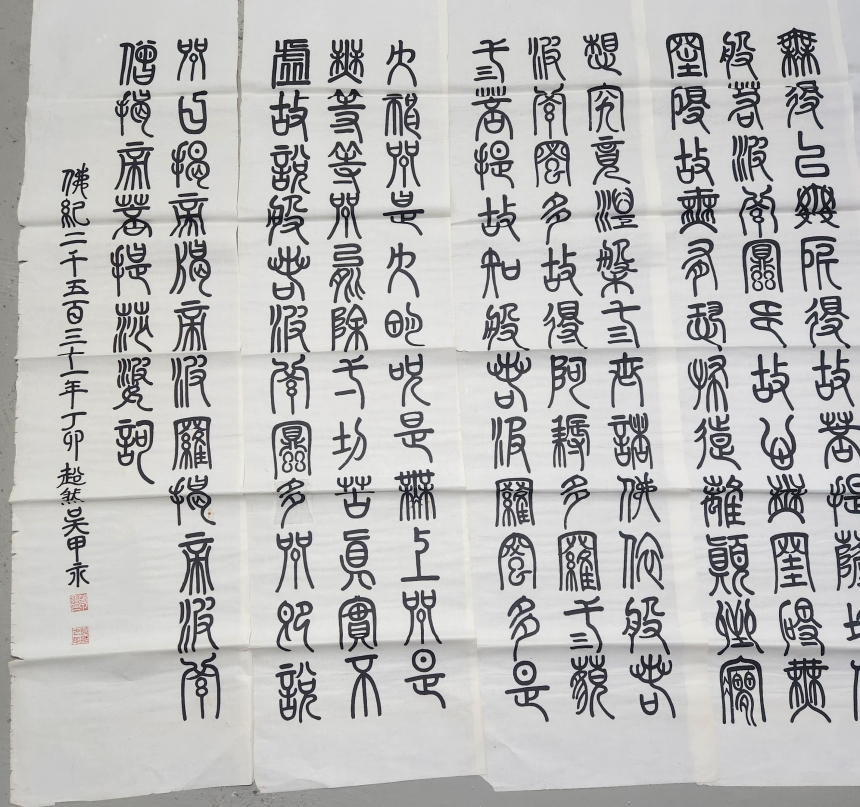 無得以無所得故菩提薩埵依
般若波羅蜜多故心無罣礙無
罣礙故無有恐怖遠離顛倒夢
想究竟涅槃三世諸佛依般若
波羅蜜多故得阿耨多羅三藐
三菩提故知般若波羅蜜多是
大神咒是大明咒是無上咒是
無等等咒能除一切苦眞實不
虛故說般若波羅蜜多咒卽說
咒曰揭帝揭帝波羅揭帝波羅
僧揭帝菩提莎婆訶
佛紀二千五百三十一年丁卯 超然吳甲永